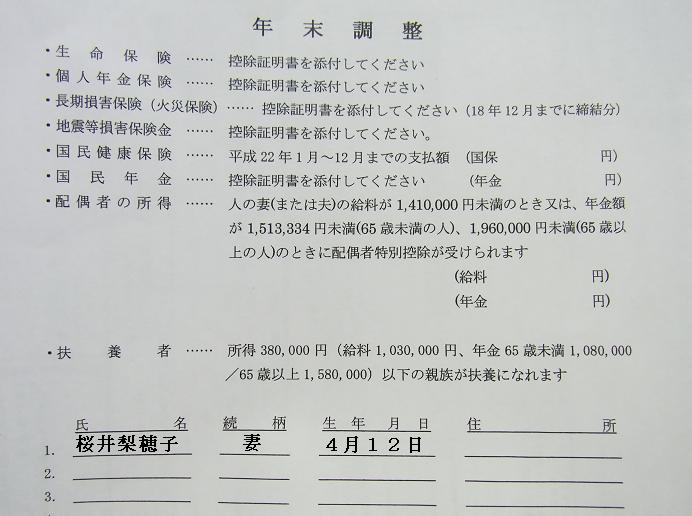 年末調整
・生命保険 …… 控除証明書を添付してください
・個人年金保険 …… 控除証明書を添付してください
・長期損害保険（火災保険）…… 控除証明書を添付してください（18年12月までに締結分）
・地震等損害保険金 …… 控除証明書を添付してください。
・国民健康保険 …… 平成22年1月～12月までの支払額 (国保 円)
・国民年金 …… 控除証明書を添付してください (年金 円)
・配偶者の所得 …… 人の妻(または夫)の給料が1,410,000円未満のとき又は、年金額
が1,513,334円未満(65歳未満の人)、1,960,000円未満(65歳以
上の人)のときに配偶者特別控除が受けられます
(給料 円)
(年金 円)
・扶養者 …… 所得380,000円（給料1,030,000円、年金65歳未満1,080,000
／65歳以上1,580,000）以下の親族が扶養になれます
氏名 続柄 生年月日 住所
1. 桜井梨穂子 妻 4月12日
2.
3.